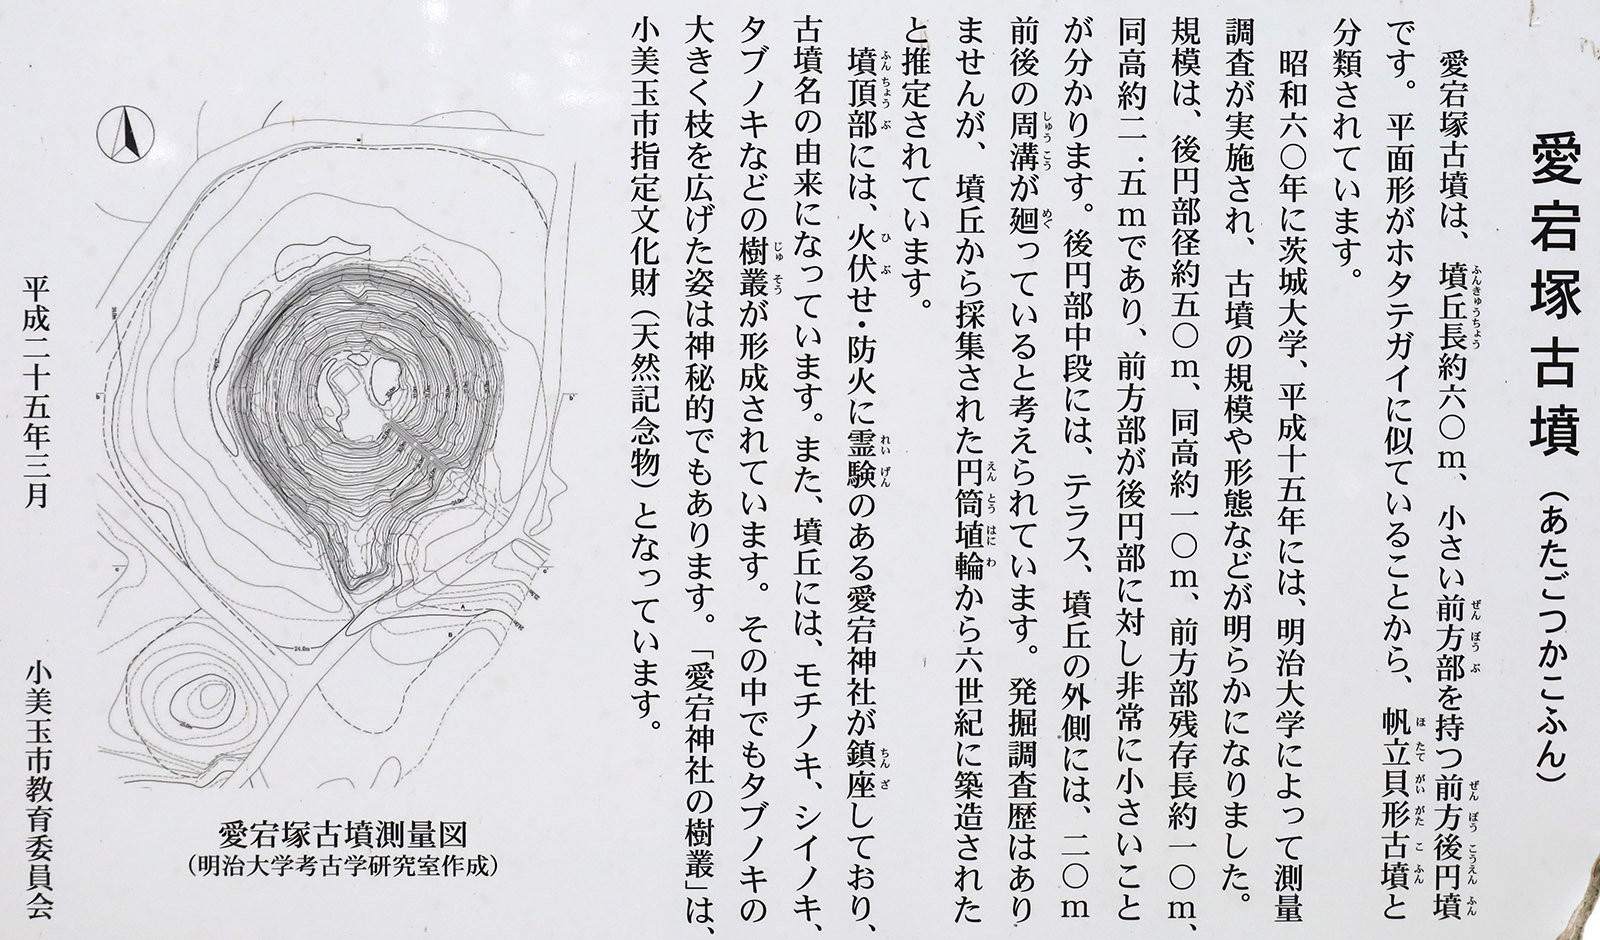 愛宕塚古墳（あたごつかこふん）
愛宕塚古墳は、墳丘長約六〇ｍ、小さい前方部を持つ前方後円墳
です。平面形がホタテガイに似ていることから、帆立貝形古墳と
分類されています。
昭和六〇年に茨城大学、平成十五年には、明治大学によって測量
調査が実施され、古墳の規模や形態などが明らかになりました。
規模は、後円部径約五〇ｍ、同高約一〇ｍ、前方部残存長約一〇ｍ、
同高約二．五ｍであり、前方部が後円部に対し非常に小さいこと
が分かります。後円部中段には、テラス、墳丘の外側には、二〇ｍ
前後の周溝が廻っていると考えられています。発掘調査歴はあり
ませんが、墳丘から採集された円筒埴輪から六世紀に築造された
と推定されています。
墳頂部には、火伏せ・防火に霊験のある愛宕神社が鎮座しており、
古墳名の由来になっています。また、墳丘には、モチノキ、シイノキ、
タブノキなどの樹叢が形成されています。その中でもタブノキの
大きく枝を広げた姿は神秘的でもあります。「愛宕神社の樹叢」は、
小美玉市指定文化財（天然記念物）となっています。
愛宕塚古墳測量図
（明治大学考古学研究室作成）
平成二十五年三月
小美玉市教育委員会